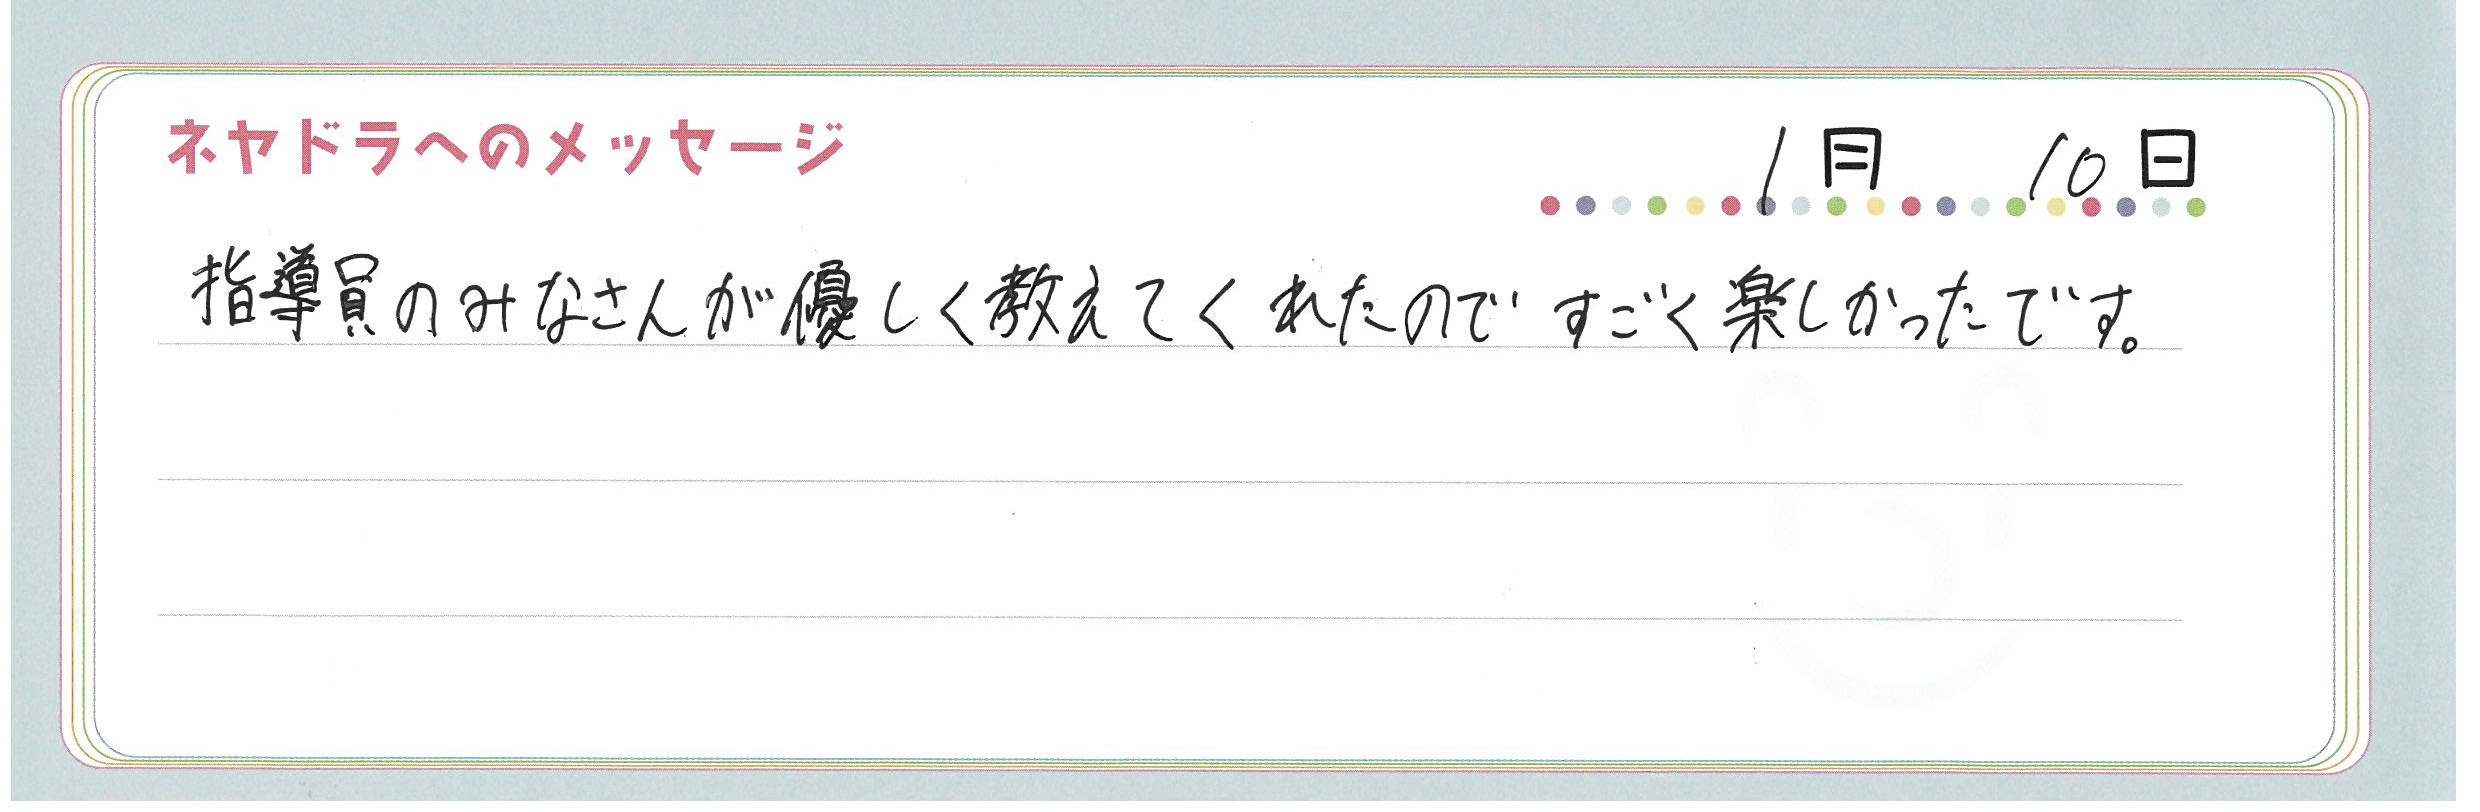 ネヤドラへのメッセージ
1月 10日
指導員のみなさんが優しく教えてくれたのですごく楽しかったです。